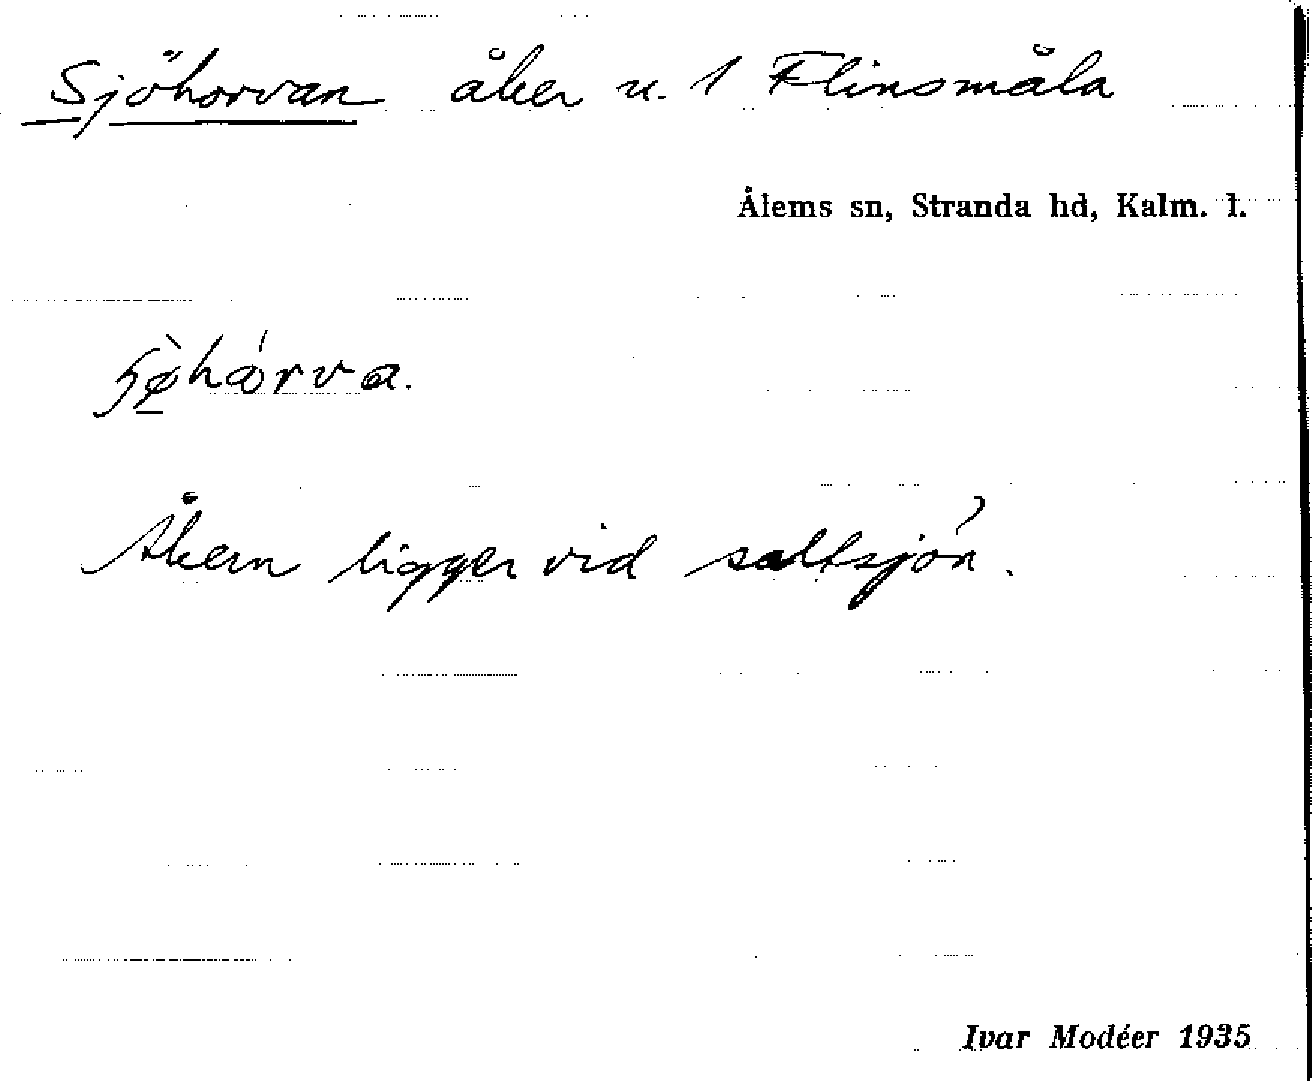 Sjöhorvan åker u. 1 Flinsmåla
Ålems sn, Stranda hd, Kalm. l.
Åkern ligger vid saltsjön.
Ivar Modéer 1935